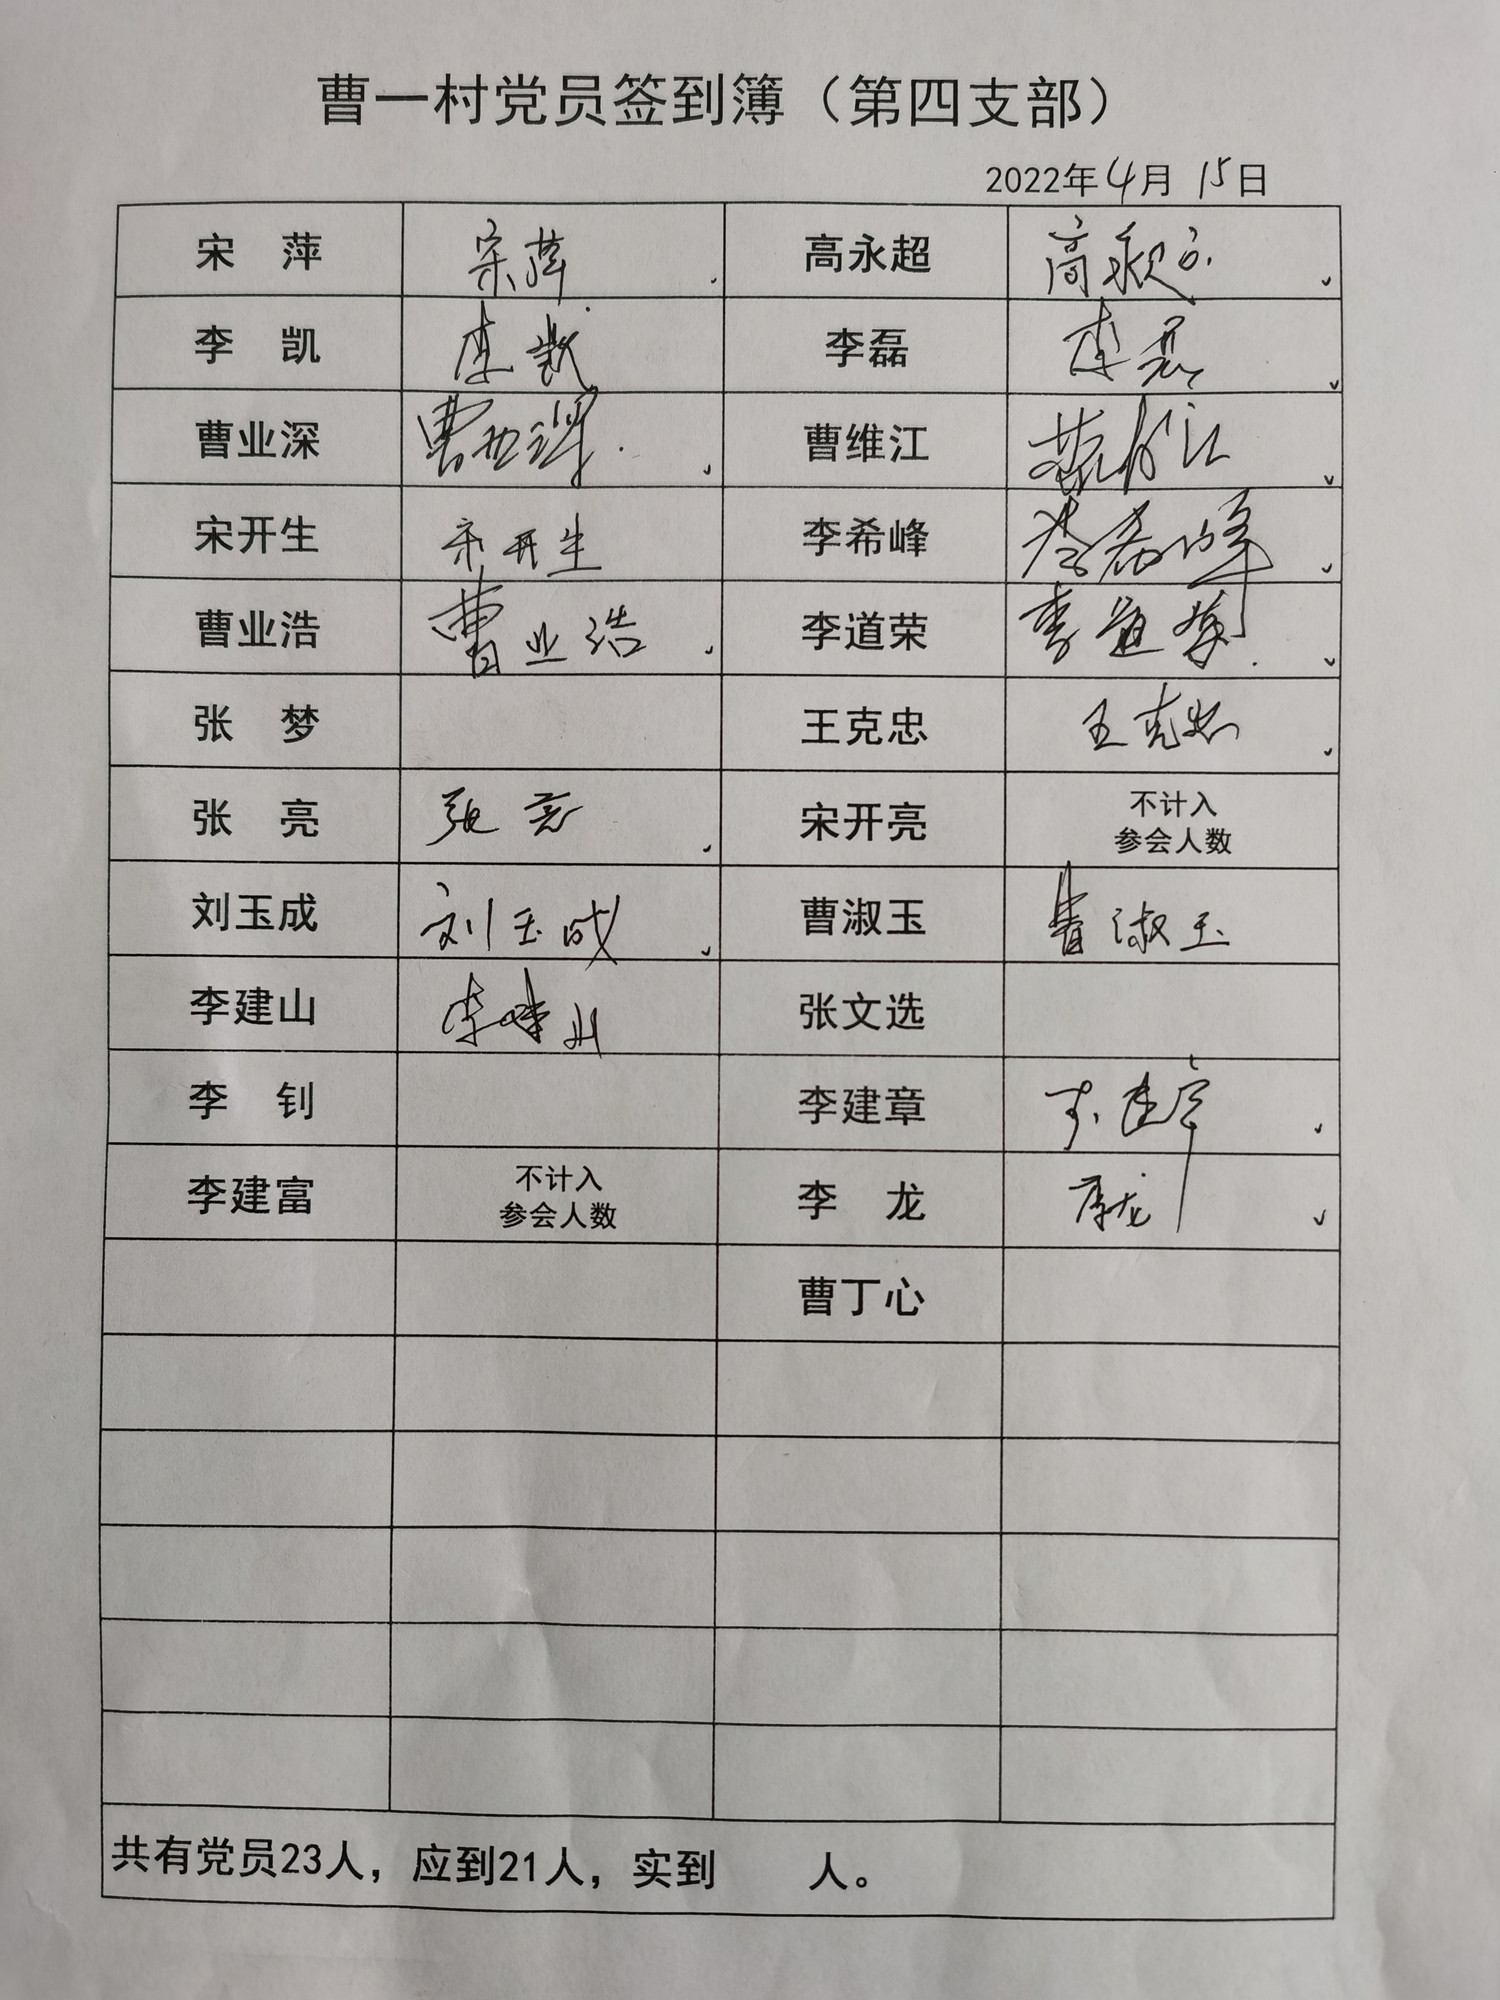 曹一村党员签到簿（第四支部）
2022年4月15日
宋 萍 宋萍 高永超 高永超
李 凯 李凯 李磊 李磊
曹业深 曹业深 曹维江 曹维江
宋开生 宋开生 李希峰 李希峰
曹业浩 曹业浩 李道荣 李道荣
张 梦 王克忠 王克忠
张 亮 张亮 宋开亮 不计入
参会人数
刘玉成 刘玉成 曹淑玉 曹淑玉
李建山 李建山 张文选
李 钊 李建章 李建章
李建富 不计入 李 龙 李龙
参会人数
曹丁心
共有党员23人，应到21人，实到 人。